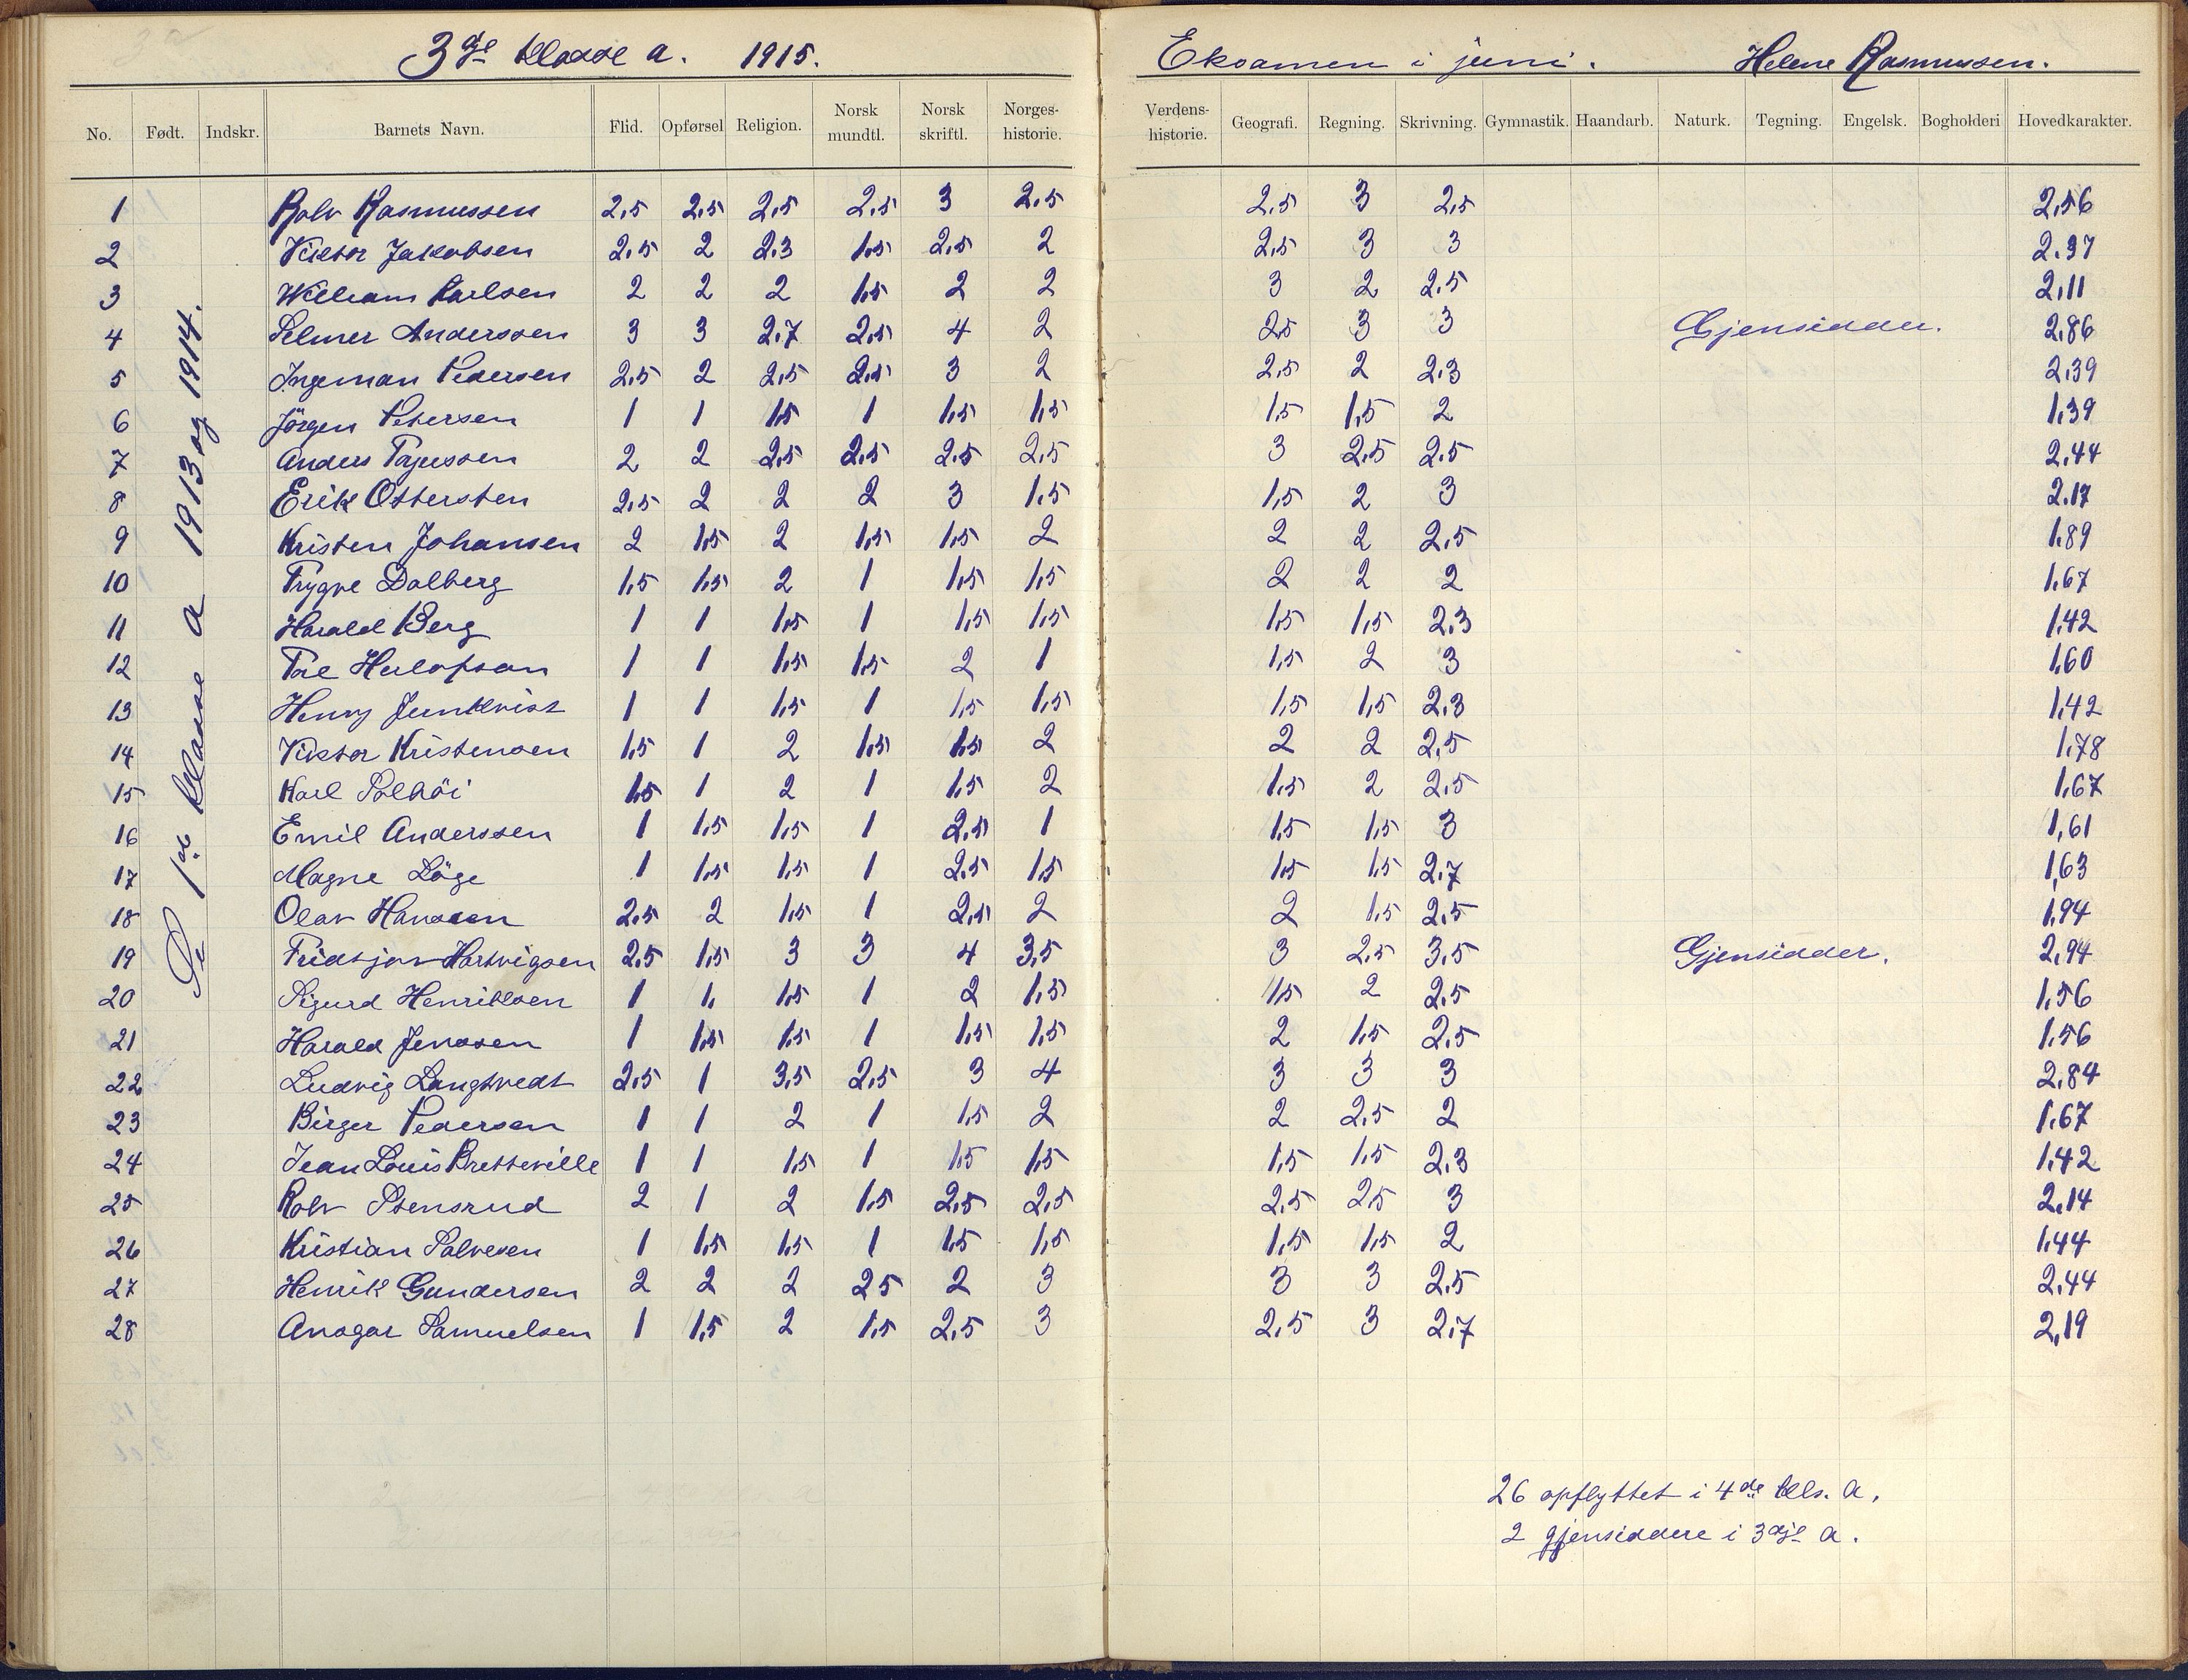 3dje klasse a. 1915.
Eksamen i juni. Helene Rasmussen.
No. Født. Indskr. Barnets Navn. Flid. Opførsel Religion. Norsk mundtl. Norsk skriftl. Norges-historie. Verdens-historie. Geografi. Regning. Skrivning. Gymnastik. Haandarb. Naturk. Tegning. Engelsk. Bogholderi Hovedkarakter.
Se 1ste klasse a 1913 og 1914.
1 Rolv Rasmussen 2,5 2,5 2,5 2,5 3 2,5 2,5 3 2,5 2,56
2 Viktor Jakobsen 2,5 2 2,3 1,5 2,5 2 2,5 3 3 2.37
3 William Karlsen 2 2 2 1,5 2 2 3 2 2,5 2,11
4 Selmer Anderssen 3 3 2,7 2,5 4 2 2,5 3 3 Gjensidder. 2,86
5 Ingeman Pedersen 2,5 2 2,5 2,5 3 2 2,5 2 2,3 2,39
6 Jörgen Petersen 1 1 1,5 1 1,5 1,5 1,5 1,5 2 1,39
7 Anders 2 2 2,5 2,5 2,5 2,5 3 2,5 2,5 2,44
8 Erik Ottersten 2,5 2 2 2 3 1,5 1,5 2 3 2.17
9 Kristen Johansen 2 1,5 2 1,5 1,5 2 2 2 2,5 1,89
10 Trygve Dalberg 1,5 1,5 2 1 1,5 1,5 2 2 2 1,67
11 Harald Berg 1 1 1,5 1 1,5 1,5 1,5 1,5 2,3 1,42
12 1 1 1,5 1,5 2 1 1,5 2 3 1,60
13 Henry Junkvist 1 1 1,5 1 1,5 1,5 1,5 1,5 2,3 1,42
14 Viktor Kristensen 1,5 1 2 1,5 1,5 2 2 2 2,5 1,78
15 Karl Solhöi 1,5 1 2 1 1,5 2 1,5 2 2,5 1,67
16 Emil Anderssen 1 1,5 1,5 1 2,5 1 1,5 1,5 3 1,61
17 Magne Löge 1 1,5 1,5 1 2,5 1,5 1,5 1,5 2,7 1,63
18 Olav Hanssen 2,5 2 1,5 1 2,5 2 2 1,5 2,5 1,94
19 Fridtjov Hartvigsen 2,5 1,5 3 3 4 3,5 3 2,5 3,5 Gjensidder. 2,94
20 Sigurd Henriksen 1 1, 1,5 1 2 1,5 1,5 2 2,5 1,56
21 Harald Jenssen 1 1,5 1,5 1 1,5 1,5 2 1,5 2,5 1,56
22 Ludvig Langtvedt 2,5 1 3,5 2,5 3 4 3 3 3 2,84
23 Birger Pedersen 1 1 2 1 1,5 2 2 2,5 2 1,67
24 Jean Louis Bretteville 1 1 1,5 1 1,5 1,5 1,5 1,5 2,3 1,42
25 Rolv Stensrud 2 1 2 1,5 2,5 2,5 2,5 2,5 3 2,14
26 Kristian Salvesen 1 1,5 1,5 1 1,5 1,5 1,5 1,5 2 1,44
27 Henrik Gundersen 2 2 2 2,5 2 3 3 3 2,5 2,44
28 Ansgar Samuelsen 1 1,5 2 1,5 2,5 3 2,5 3 2,7 2,19
26 opflyttet i 4de kls. a.
2 gjensiddere i 3dje a.